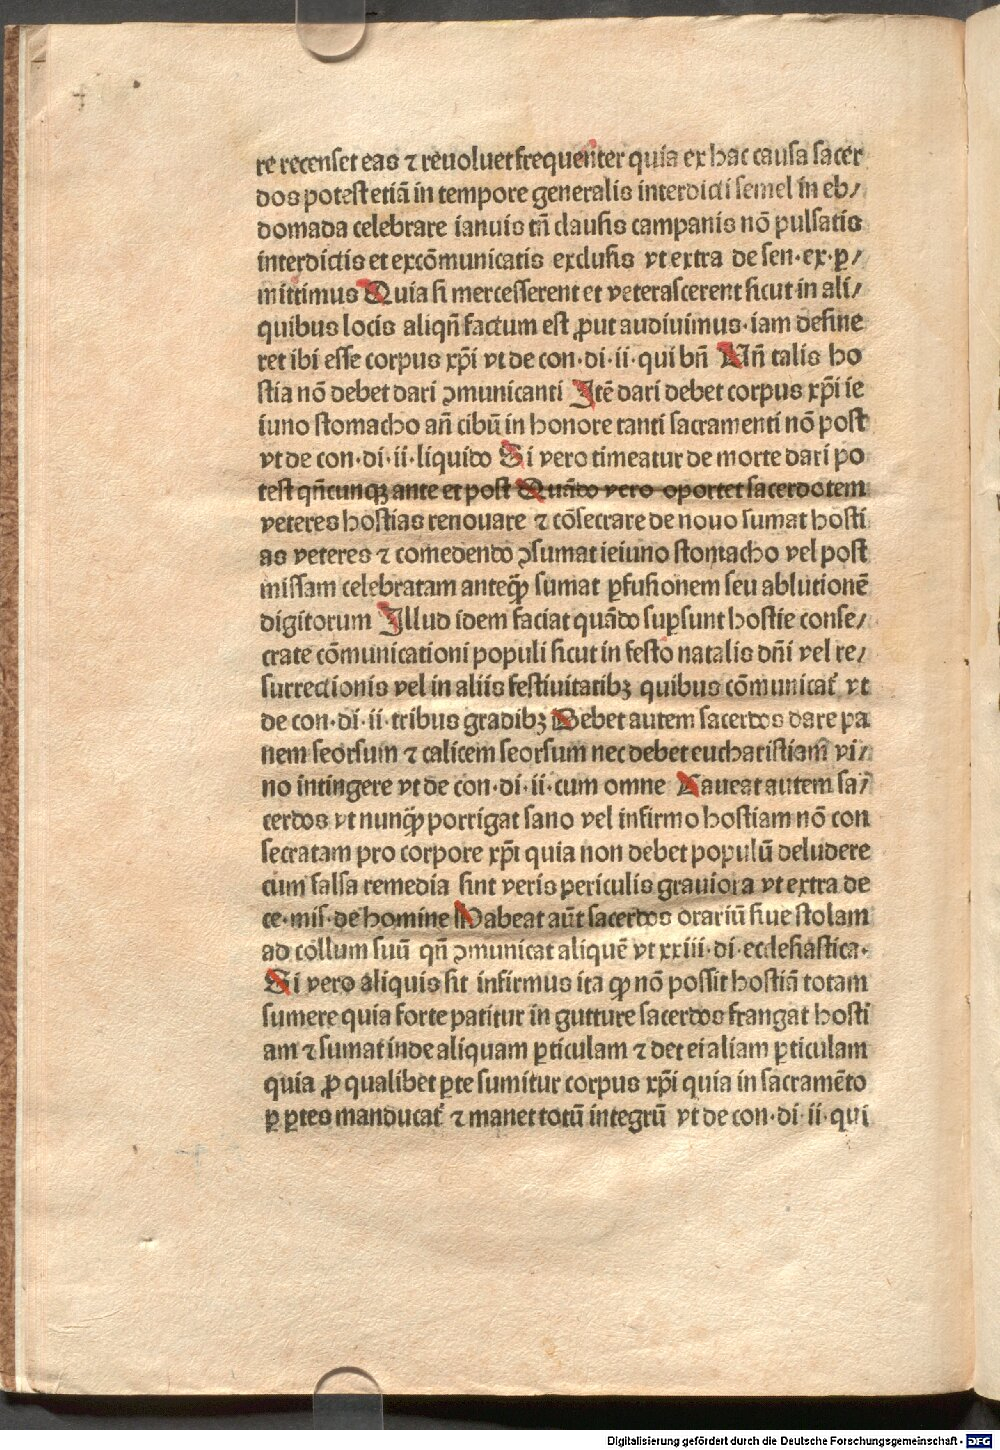 re recenset eas ⁊ reuoluet frequenter quia ex hac causa sacer
dos potest etiā in tempore generalis interdicti semel in eb/
domada celebrare ianuis tn̄ clausis campanis nō pulsatis
interdictis et excōmunicatis exclusis vt extra de sen·ex·ꝑ/
mittimus Quia si mercesserent et veterascerent sicut in ali/
quibus locis aliqn̄ factum est ꝓut audiuimus·iam define
ret ibi esse corpus xp̄i vt de con·di·ii·qui bn̄ Un̄ talis ho
stia nō debet dari ↄmunicanti Itē dari debet corpus xp̄i ie
iuno stomacho an̄ cibū in honore tanti sacramenti nō post
vt de con·di·ii·liquido Si vero timeatur de morte dari po
test qn̄cunqꝫ ante et post Quādo vero oportet sacerdotem
veteres hostias renouare ⁊ cōsecrare de nouo sumat hosti
as veteres ⁊ comedendo ↄsumat ieiuno stomacho vel post
missam celebratam anteqꝙ̄ sumat ꝑfusionem seu ablutionē
digitorum Illud idem faciat quādo suꝑsunt hostie conse/
crate cōmunicationi populi sicut in festo natalis dn̄i vel re/
surrectionis vel in aliis festiuitatibꝫ quibus cōmunicat᷑ vt
de con·di·ii·tribus gradibꝫ Debet autem sacerdos dare pa
nem seorsum ⁊ calicem seorsum nec debet eucharistiam vi/
no intingere vt de con·di·ii·cum omne Caueat autem sa/
cerdos vt nunqꝙ̄ porrigat sano vel infirmo hostiam nō con
secratam pro corpore xp̄i quia non debet populū deludere
cum falsa remedia sint veris periculis grauiora vt extra de
ce·mis·de homine Habeat aūt sacerdos orariū siue stolam
ad collum suū qn̄ ↄmunicat aliquē vt xxiii·di·ecclesiastica·
Si vero aliquis sit infirmus ita ꝙ nō possit hostiā totam
sumere quia forte patitur in gutture sacerdos frangat hosti
am ⁊ sumat inde aliquam ꝑticulam ⁊ det ei aliam ꝑticulam
quia ꝓ qualibet ꝑte sumitur corpus xp̄i quia in sacramēto
ꝑ ꝑtes manducat᷑ ⁊ manet totū integrū vt de con·di·ii·qui
Digitalisierung gefördert durch die Deutsche Forschungsgemeinschaft - DFG